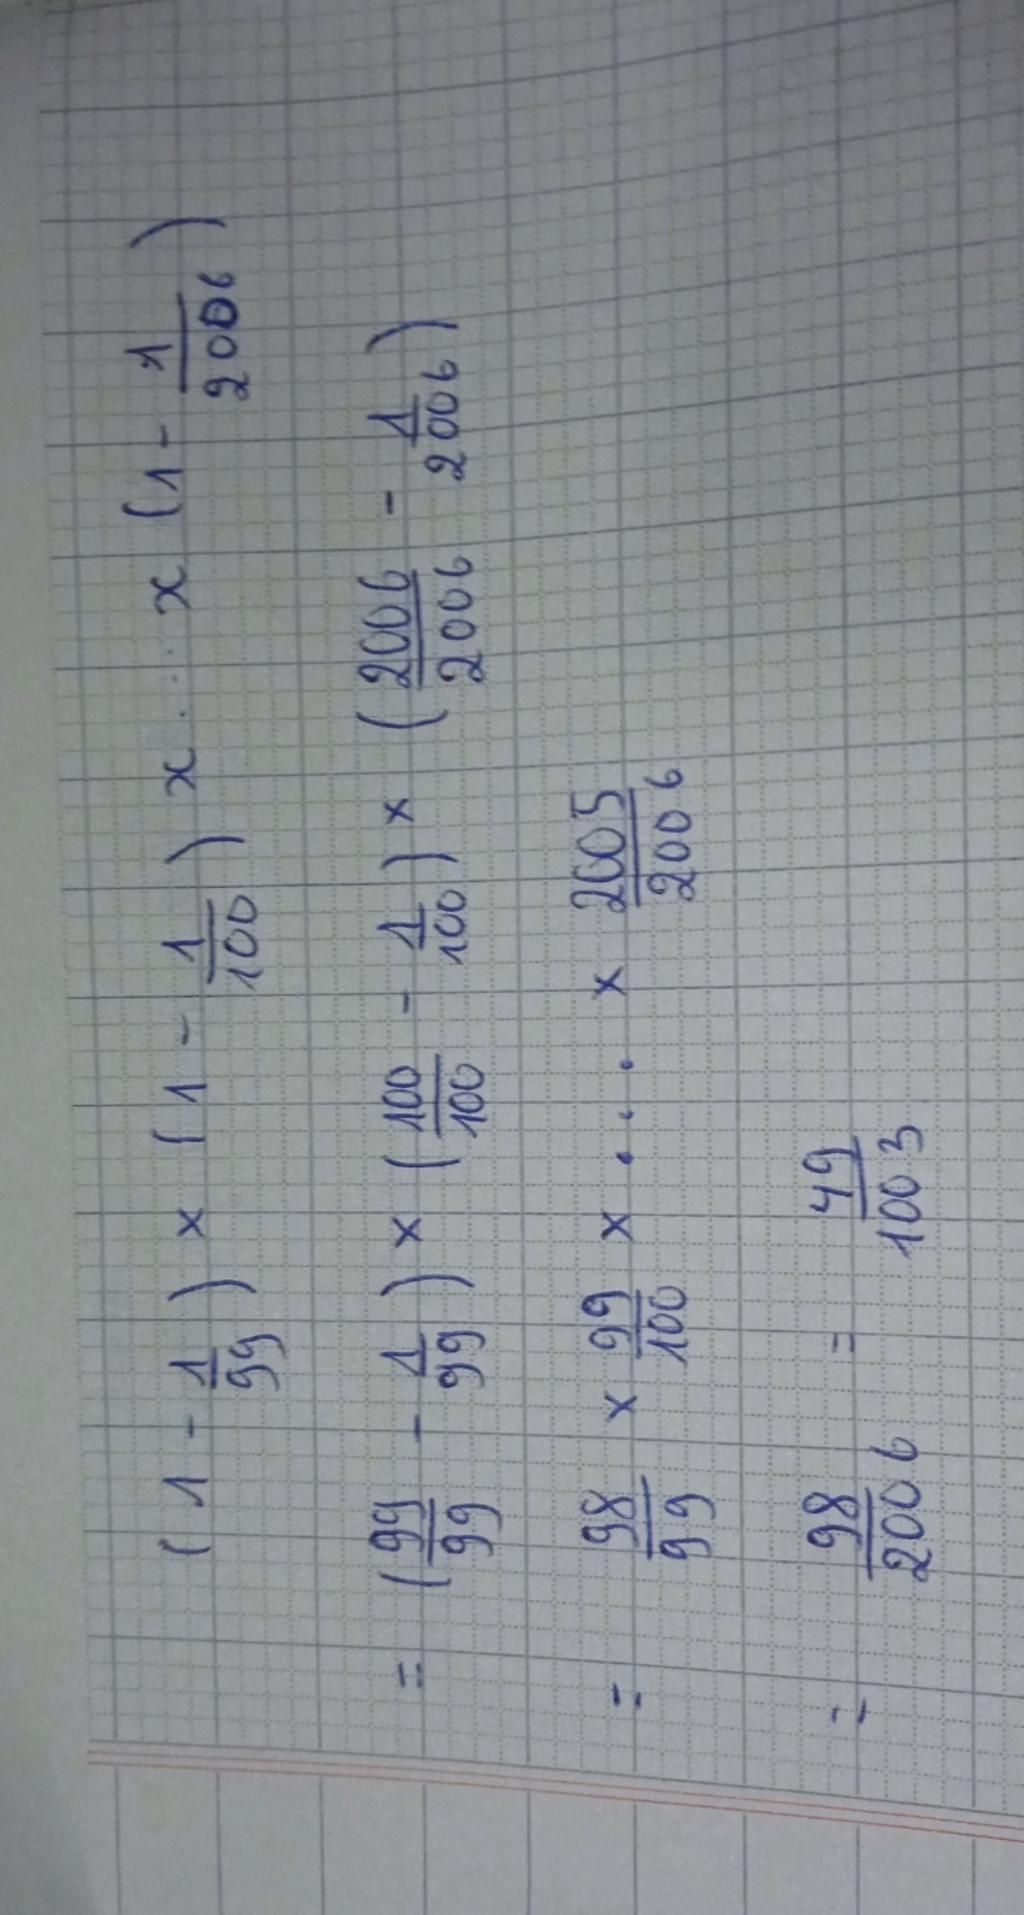 (1 - 1/99) x (1 - 1/100) x .... x (1 - 1/2006)
= (99/99 - 1/99) x (100/100 - 1/100) x (2006/2006 - 1/2006)
= 98/99 x 99/100 x .... x 2005/2006
= 98/2006 = 49/1003